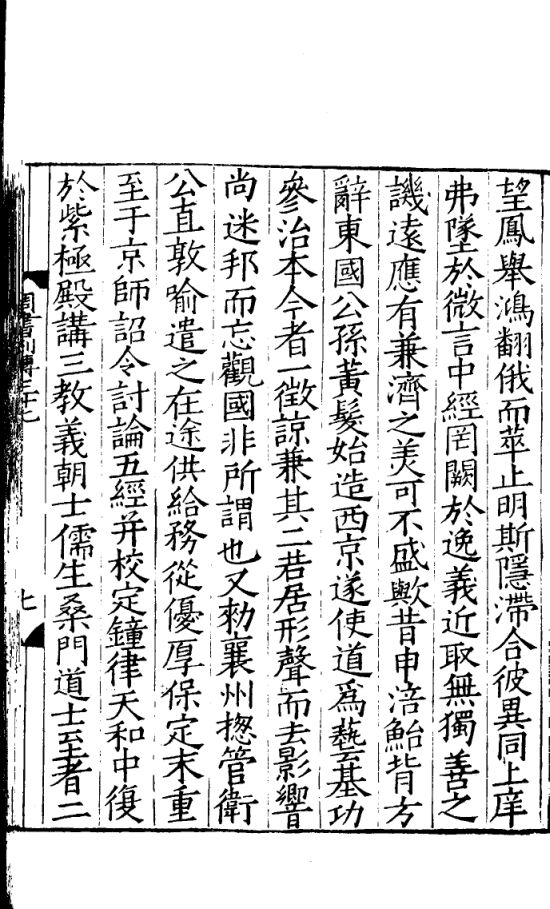 望鳳舉鴻翻俄而萃止明斯隱滯合彼異同上庠
弗墜於微言中經罔闕於逸義近取無獨善之
譏遠應有兼濟之美可不盛歟昔申涪鮐背方
辭東國公孫黃髮始造西京遂使道爲藝基功
參治本今者一徵諒兼其二若居形聲而去影響
尚迷邦而忘觀國非所謂也又勑襄州揔管衛
公直敦喻遣之在途供給務從優厚保定末重
至于京師詔令討論五經并校定鐘律天和中復
於紫極殿講三教義朝士儒生桑門道士至者二
周書列傳三十七
七